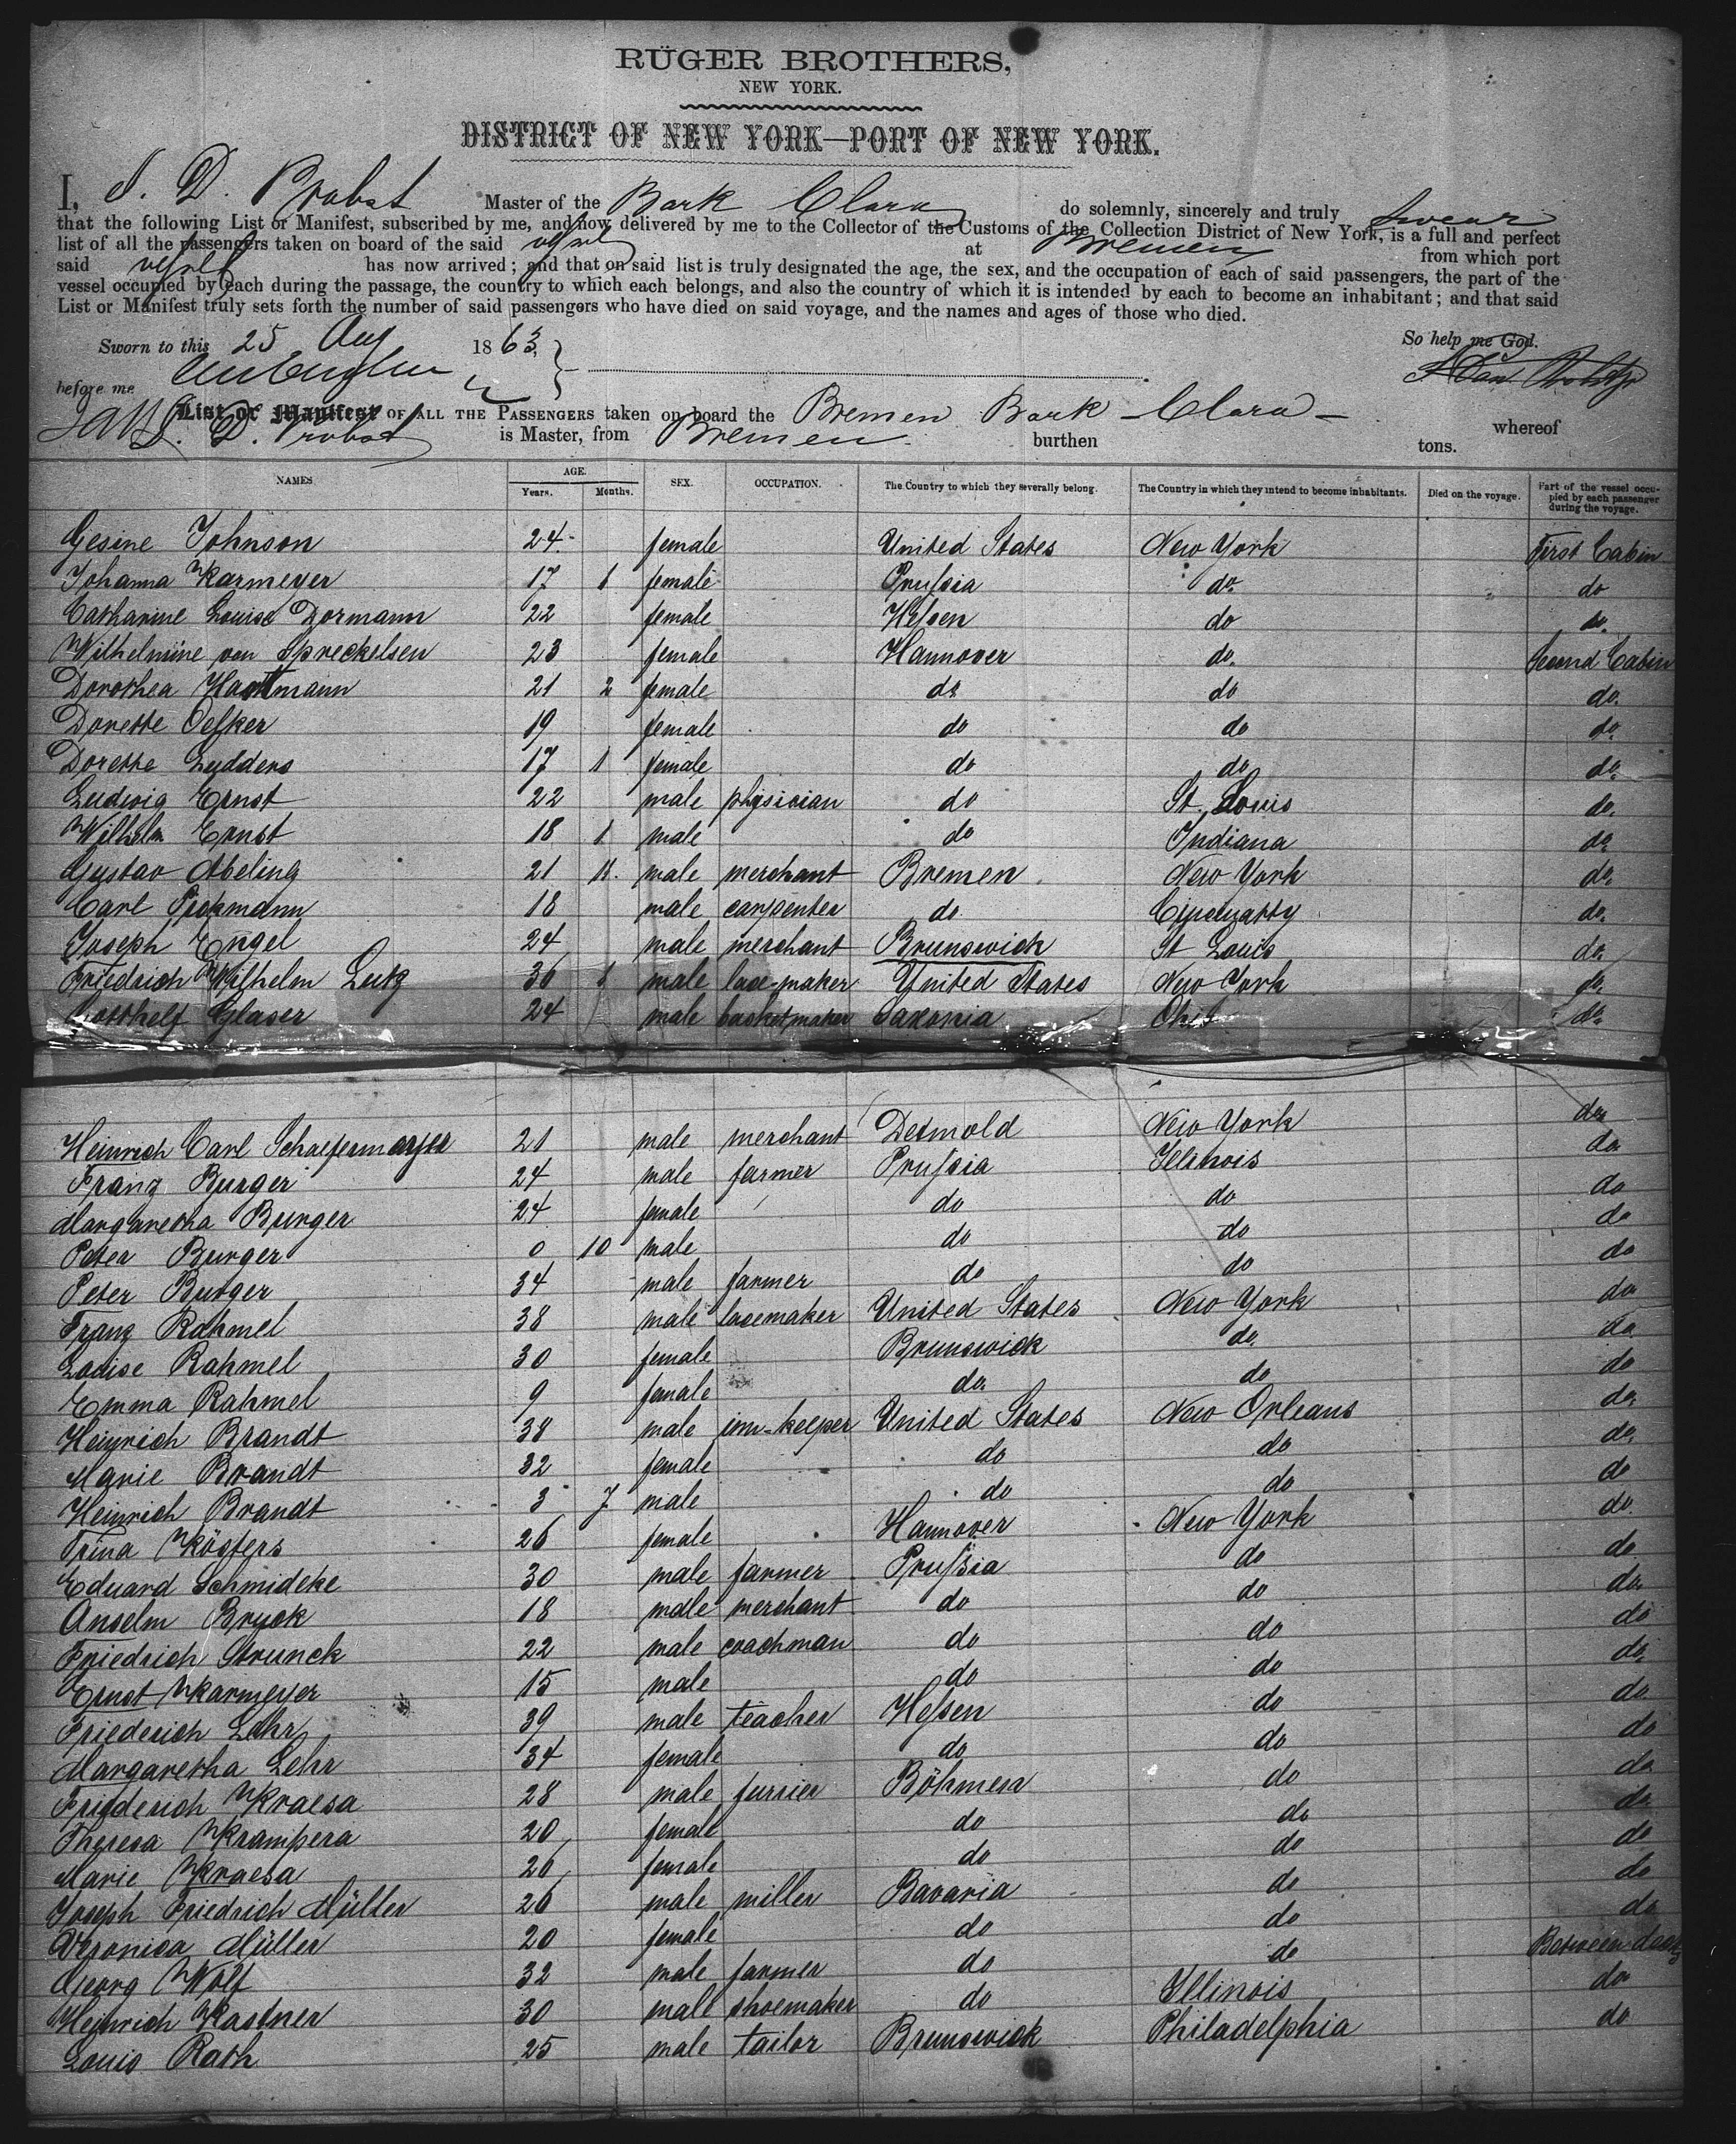 RÜGER BROTHERS,
NEW YORK.
DISTRICT OF NEW YORK—PORT OF NEW YORK.
I, D. Probst Master of the Bark Clara do solemnly, sincerely and truly swear
that the following List or Manifest, subscribed by me, and now delivered by me to the Collector of the Customs of the Collection District of New York, is a full and perfect
list of all the passengers taken on board of the said vessel at Bremen from which port
said vessel has now arrived; and that on said list is truly designated the age, the sex, and the occupation of each of said passengers, the part of the
vessel occupied by each during the passage, the country to which each belongs, and also the country of which it is intended by each to become an inhabitant; and that said
List or Manifest truly sets forth the number of said passengers who have died on said voyage, and the names and ages of those who died.
Sworn to this 25 Aug 1863, So help me God.
before me
List or Manifest OF ALL THE PASSENGERS taken on board the Bremen Bark Clara whereof
D. Probst is Master, from Bremen burthen tons.
NAMES. AGE. Years. Months. SEX. OCCUPATION. The Country to which they severally belong. The Country in which they intend to become inhabitants. Died on the voyage. Part of the vessel occupied by each passenger during the voyage.
Gesine Johnson 24 female United States New York First Cabin
Johanna Karmeyer 17 1 female Prussia do do
Catharine Louise Dormann 22 female Hessen do do
Wilhelmine von Spreckelsen 23 female Hannover do Second Cabin
Dorothea Hartmann 21 2 female do do do
Dorette Oefker 19 female do do do
Dorette Ludders 17 1 female do do do
Ludwig Ernst 22 male physician do St. Louis do
Wilhelm Ernst 18 1 male do Indiana do
Gustav Abeling 21 11 male merchant Bremen New York do
Carl 18 male carpenter do do
Joseph Engel 24 male merchant Brunswick St Louis do
Friedrich Wilhelm Lutz 36 1 male lace-maker United States New York do
Gotthelf Glaser 24 male basketmaker Saxonia Ohio do
Heinrich Carl Schaefermeyer 21 male merchant Detmold New York do
Franz Burger 24 male farmer Prussia Illinois do
Margaretha Burger 24 female do do do
Peter Burger 0 10 male do do do
Peter Burger 34 male farmer do do do
Franz Rahmel 38 male lacemaker United States New York do
Louise Rahmel 30 female Brunswick do do
Emma Rahmel 9 female do do do
Heinrich Brandt 38 male inn-keeper United States New Orleans do
Marie Brandt 32 female do do do
Heinrich Brandt 3 7 male do do do
Trina Kösters 26 female Hannover New York do
Eduard Schmideke 30 male farmer Prussia do do
Anselm Bryck 18 male merchant do do do
Friedrich Strunck 22 male coachman do do do
Ernst Karmeyer 15 male do do do
Friederich Lehr 39 male teacher Hessen do do
Margaretha Lehr 34 female do do do
Friederich Kraesa 28 male furrier Böhmen do do
Theresa Krampera 20 female do do do
Marie Kraesa 26 female do do do
Joseph Friedrich Müller 26 male miller Bavaria do do
Veronica Müller 20 female do do do
Georg Wolf 32 male farmer do do Between decks
Heinrich Kastner 30 male shoemaker do Illinois do
Louis Rath 25 male tailor Brunswick Philadelphia do